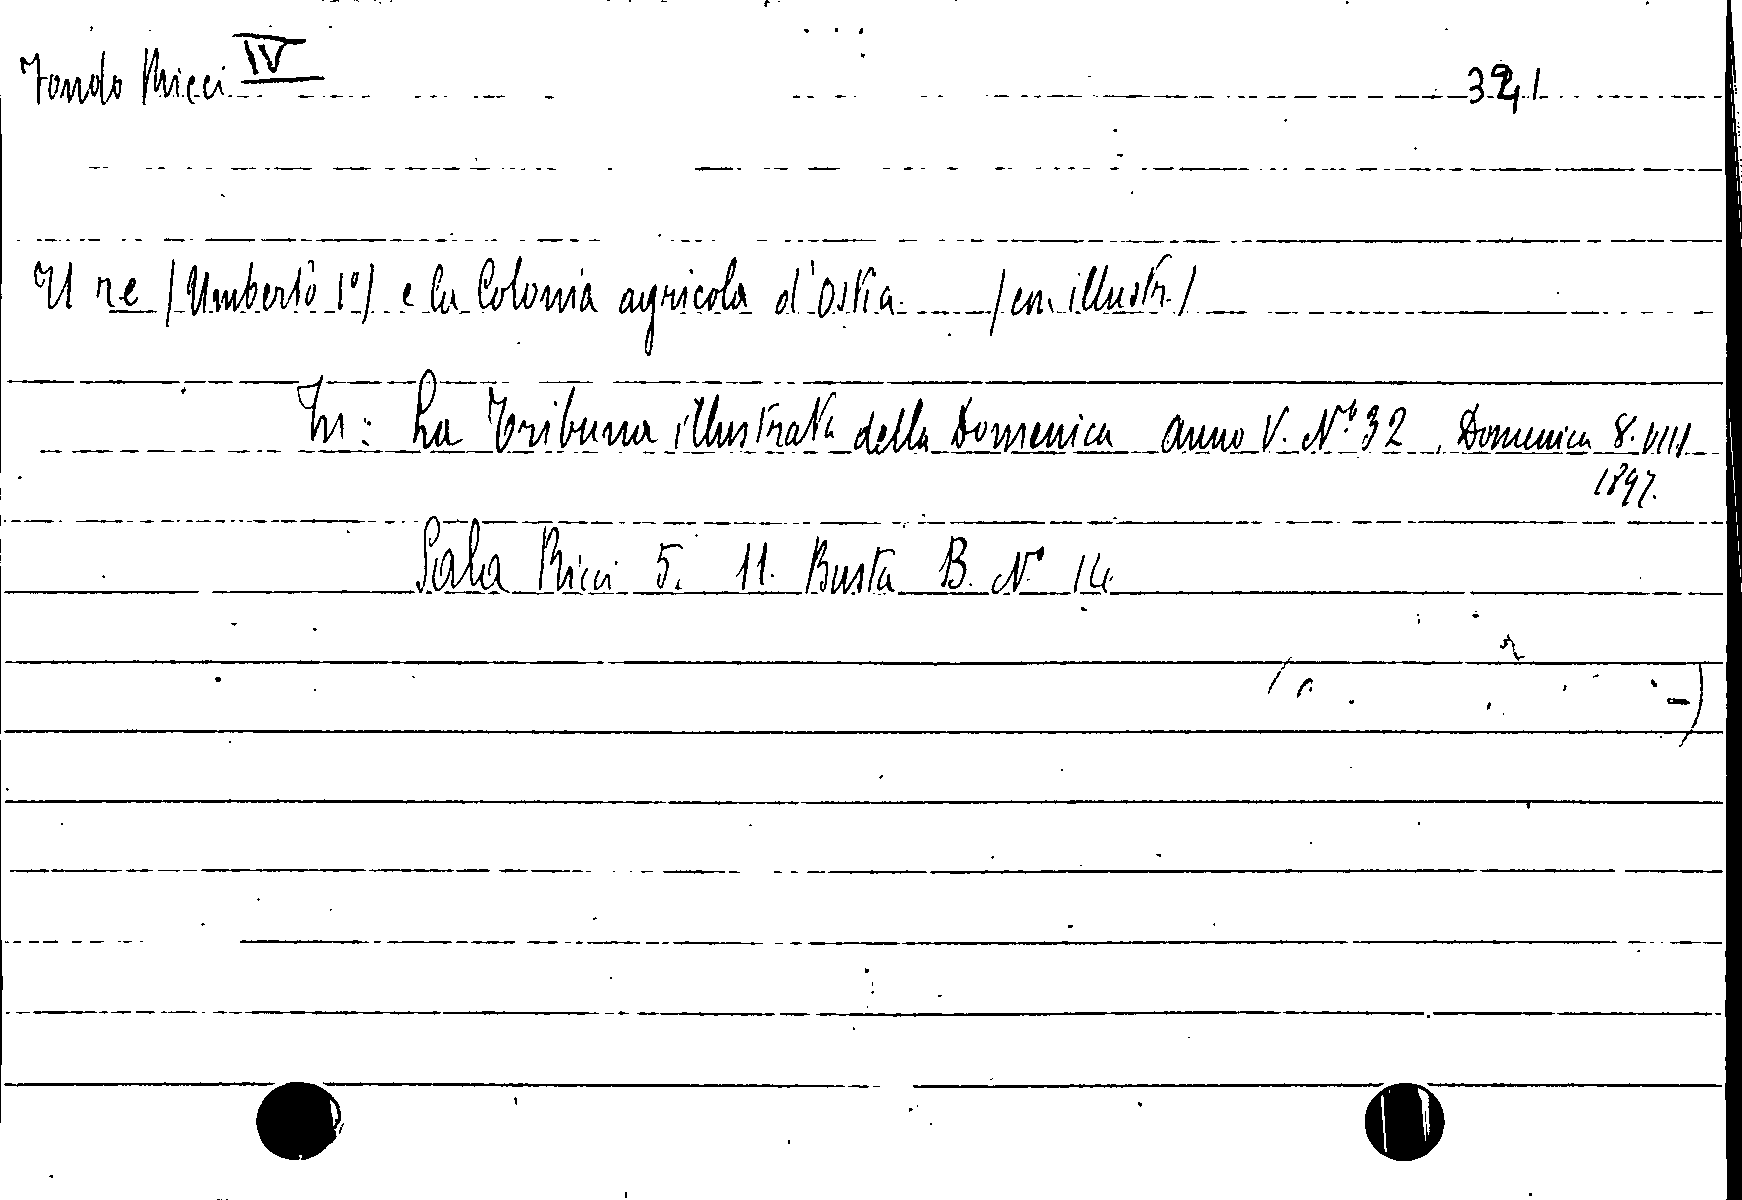 Fondo Ricci IV
Il re (Umberto 1°) e la Colonia agricola d'Ostia. (con illustr.)
In: La Tribuna illustrata della Domenica anno V. N° 32, Domenica 8.VIII
1897.
Sala Ricci 5. 11. Busta B. N° 14.